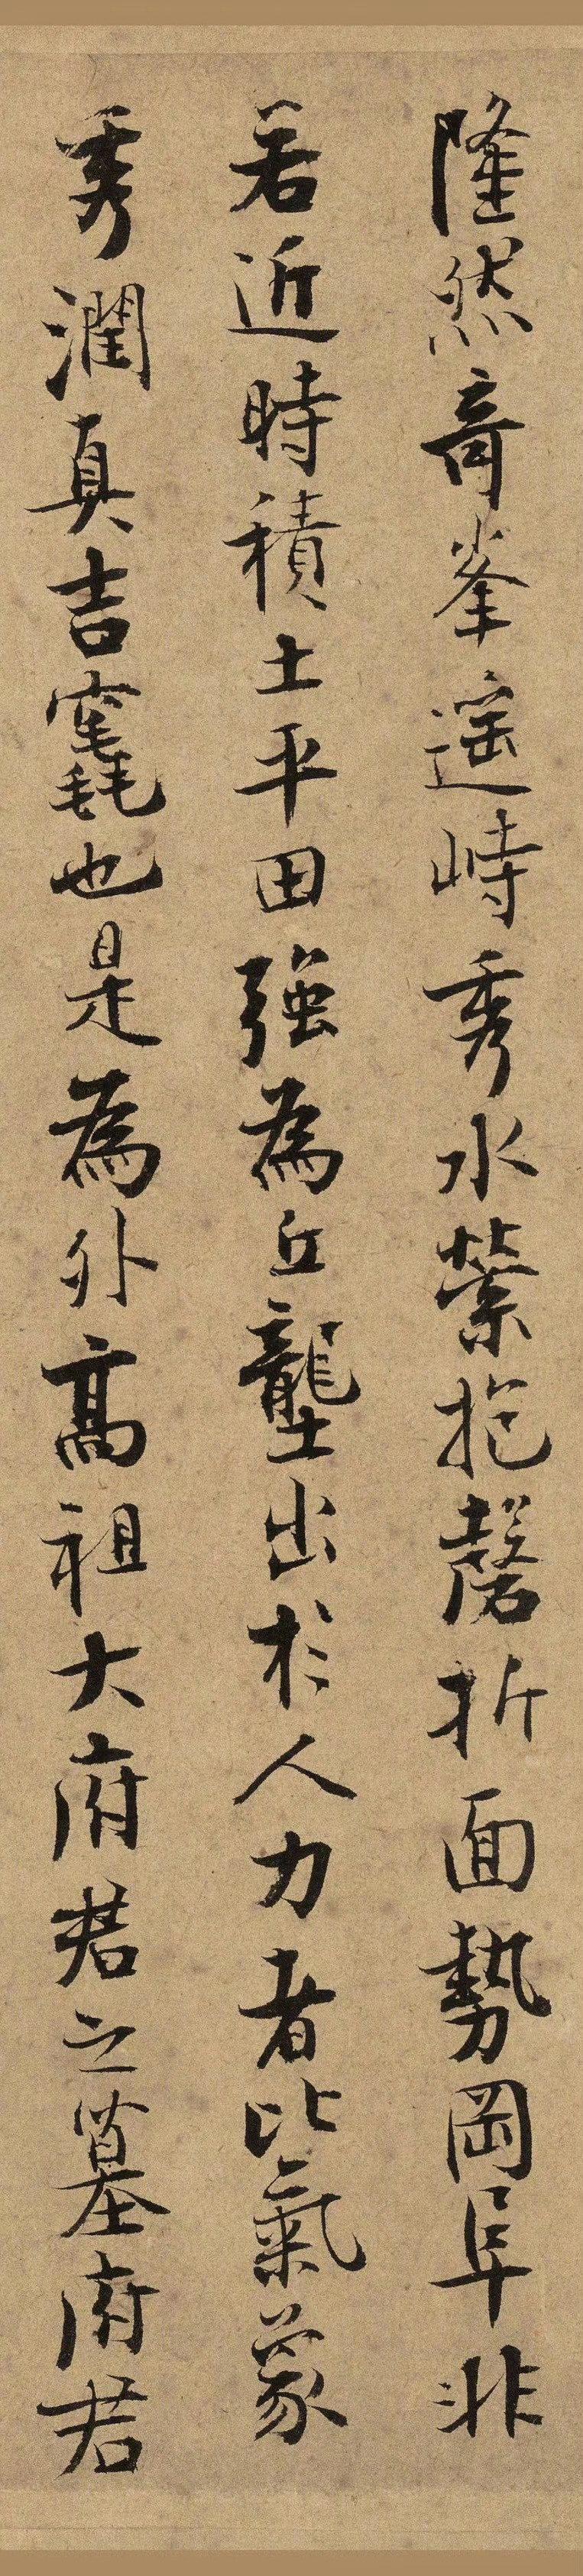 隆然奇峯遥峙秀水縈抱磬折面勢岡阜非
若近時積土平田強為丘壟出於人力者比氣象
秀潤真吉竁也是為外高祖大府君之墓府君